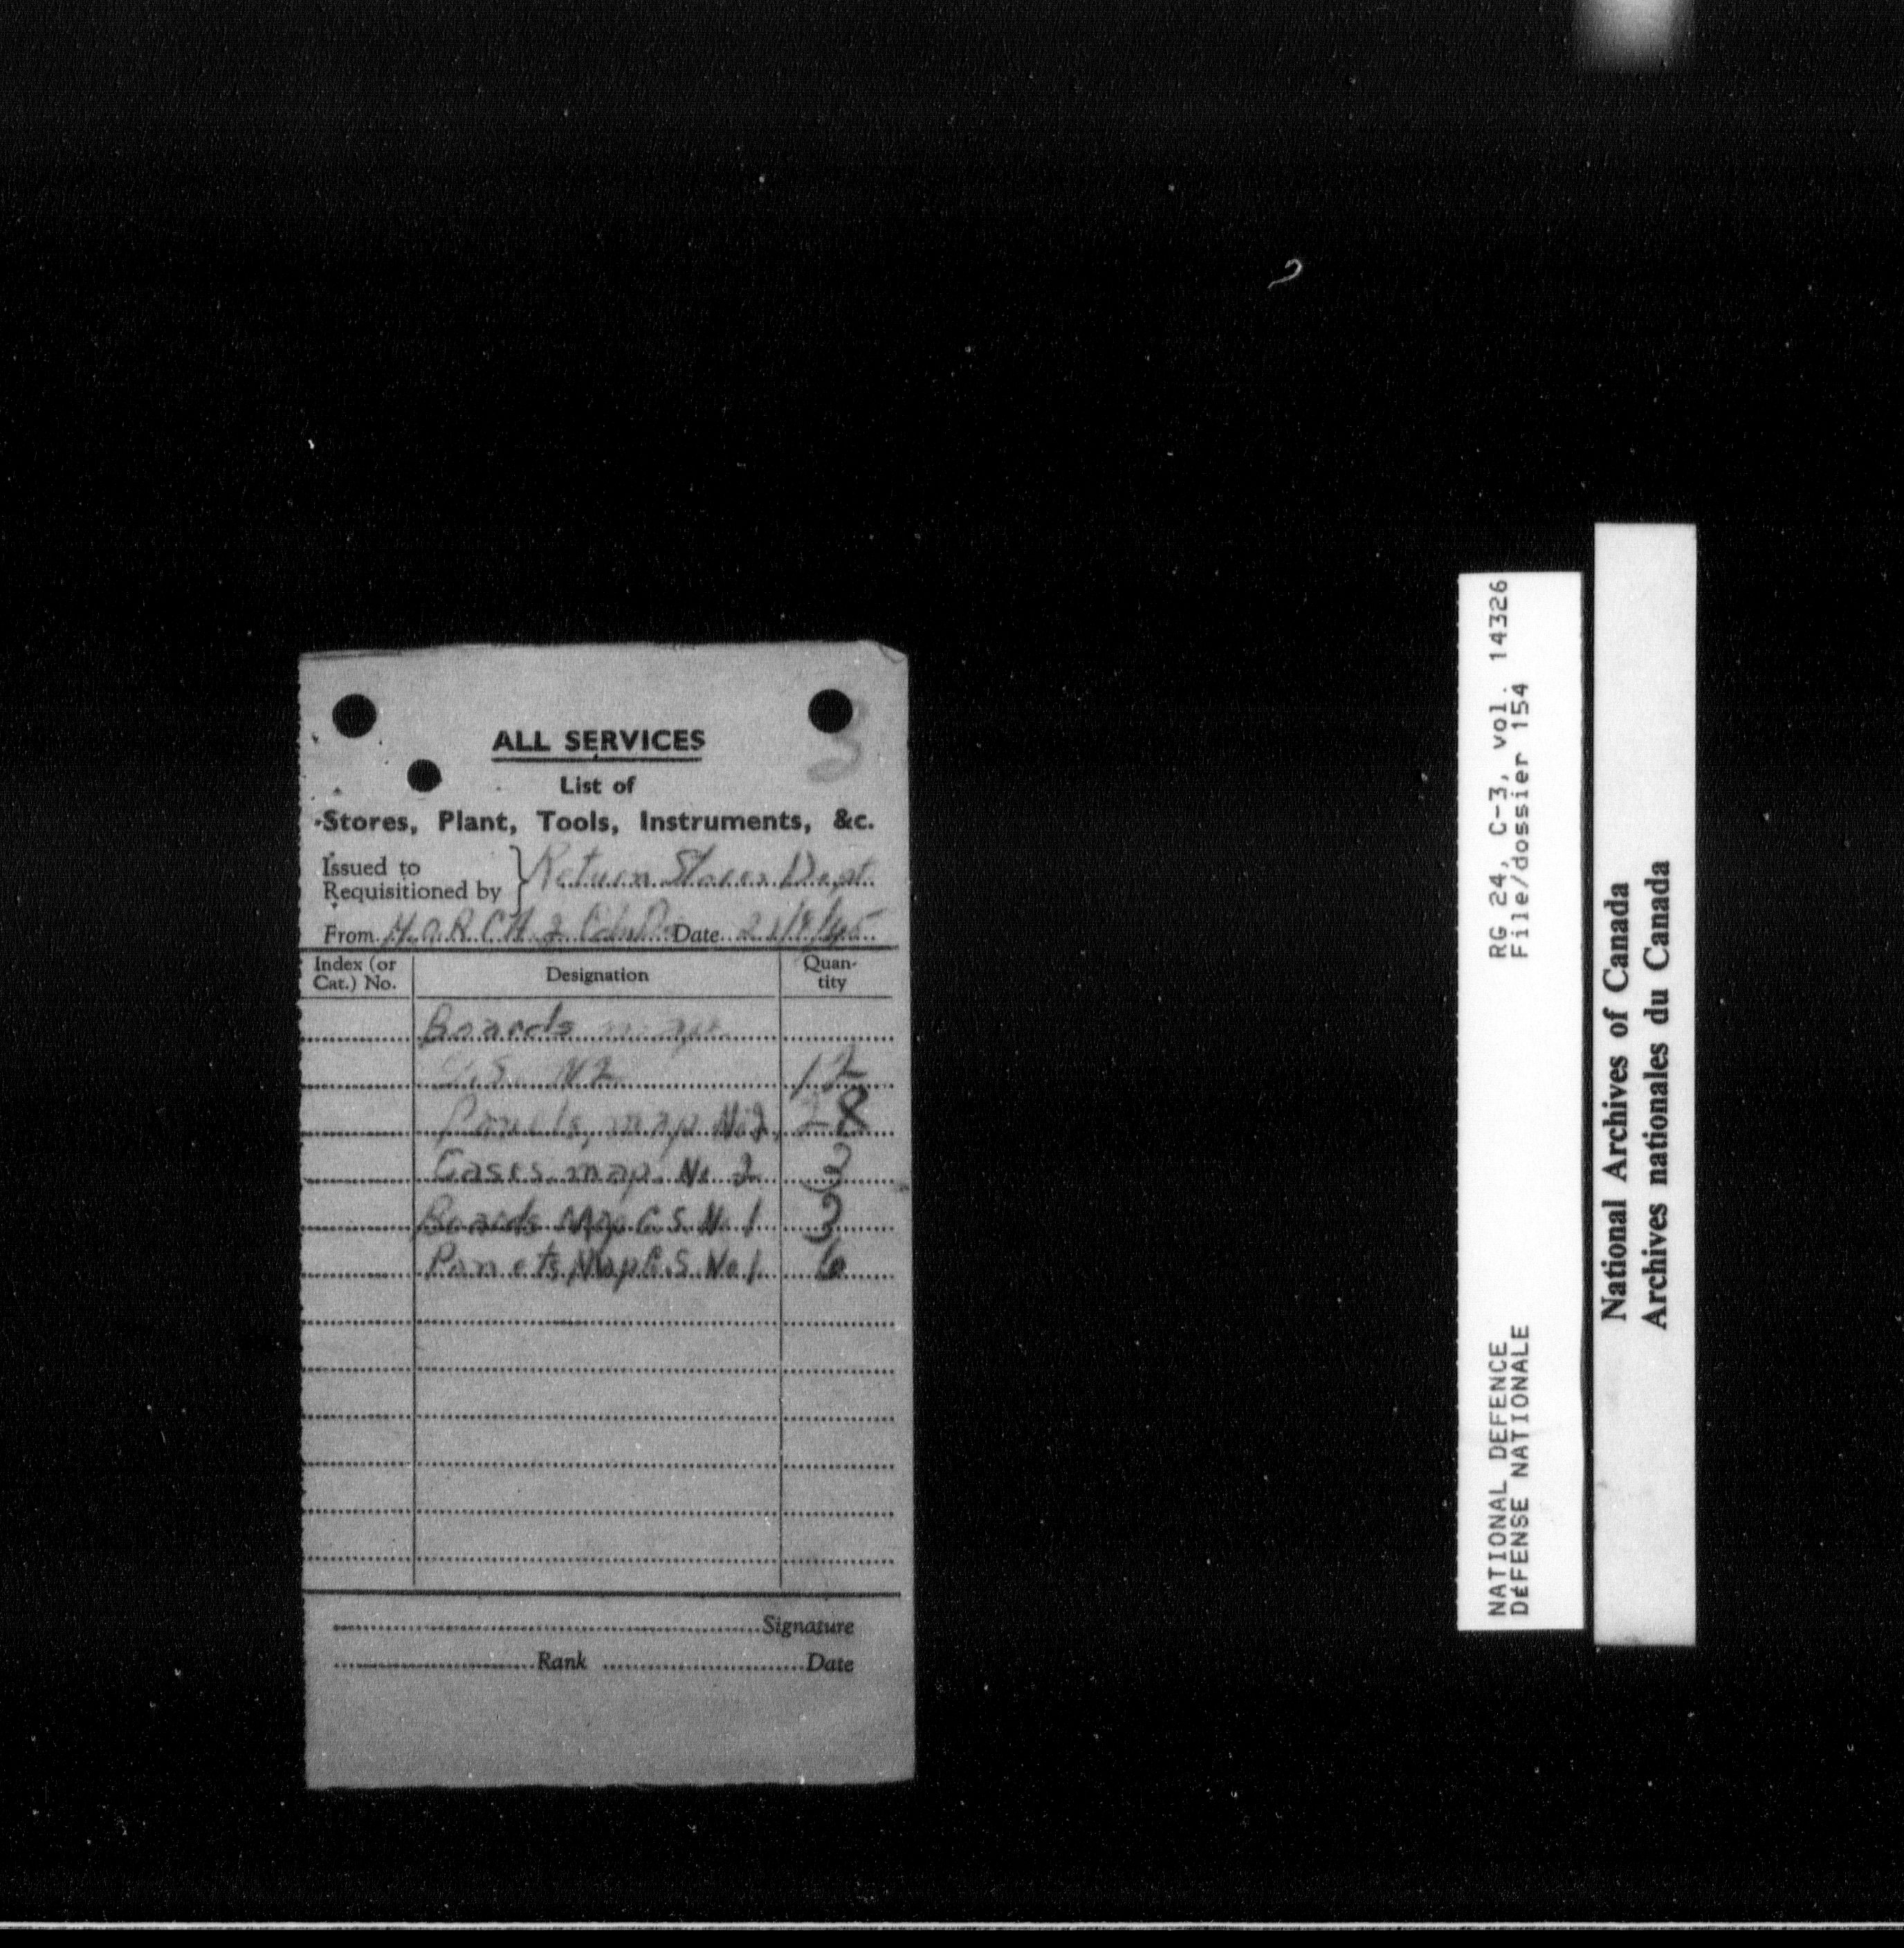 3
ALL SERVICES
List of
Stores, Plant, Tools, Instruments, &c.
Issued to
Requisitioned by } Return Stores Dept.
From Date 21/9/45
Index (or Cat.) No. Designation Quantity
Boards map
G.S. N2 12
Panels, map No 2, 28
Cases map No 2 3
Boards Map G.S. No 1 3
Panels Map G.S. No 1 6
Signature
Rank Date
RG 24, C-3, vol. 14326
File/dossier 154
NATIONAL DEFENCE
DÉFENSE NATIONALE
National Archives of Canada
Archives nationales du Canada